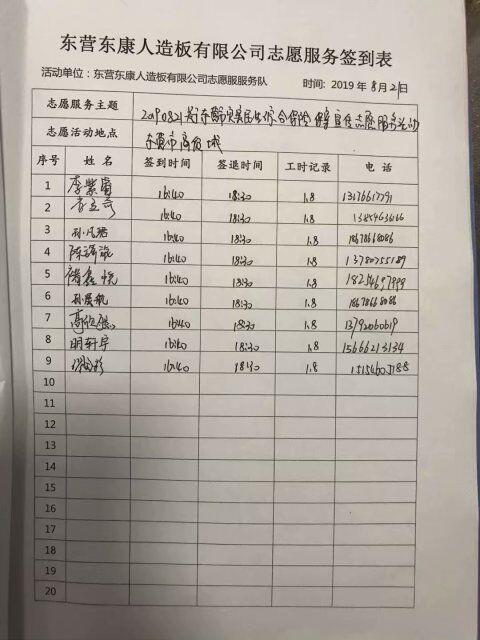 东营东康人造板有限公司志愿服务签到表
活动单位：东营东康人造板有限公司志愿服务队 时间: 2019 年 8 月 21 日
志愿服务主题 20190821 志愿服务活动
志愿活动地点 东营市商贸城
序号 姓 名 签到时间 签退时间 工时记录 电 话
1 李 16:40 18:30 1.8 13176617791
2 李 16:40 18:30 1.8
3 孙凡 16:40 18:30 1.8 18678668086
4 陈 16:40 18:30 1.8 13780755189
5 鑫悦 16:40 18:30 1.8
6 孙 16:40 18:30 1.8 18678668086
7 高 16:40 18:30 1.8 13792060619
8 明轩宇 16:40 18:30 1.8 15666213134
9 16:40 18:30 1.8
10
11
12
13
14
15
16
17
18
19
20